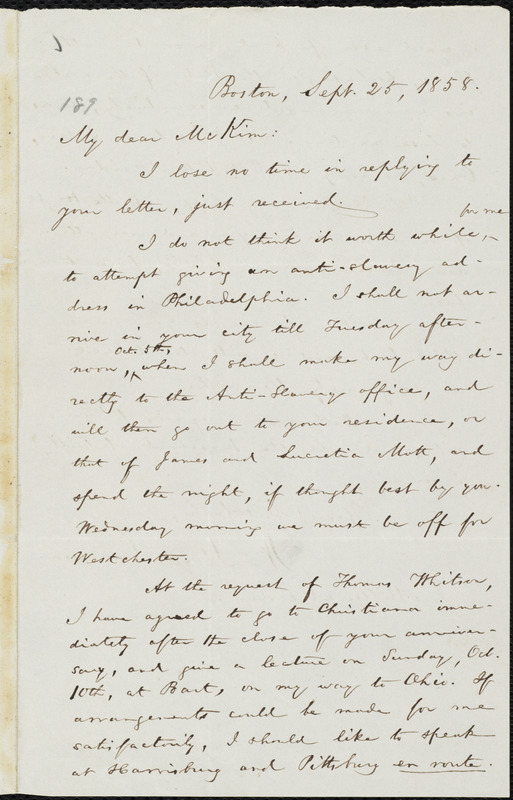 189
Boston, Sept. 25, 1858.
My dear McKim:
I lose no time in replying to
your letter, just received.
for me
I do not think it worth while,
to attempt giving an anti-slavery ad-
dress in Philadelphia. I shall not ar-
rive in your city till Tuesday after-
Oct. 5th,
noon, when I shall make my way di-
rectly to the Anti-Slavery office, and
will then go out to your residence, or
that of James and Lucretia Mott, and
spend the night, if thought best by you.
Wednesday morning we must be off for
Westchester.
At the request of Thomas Whitson,
I have agreed to go to Christiana imme-
diately after the close of your anniver-
sary, and give a lecture on Sunday, Oct.
10th, at Bart, on my way to Ohio. If
arrangements could be made for me
satisfactorily, I should like to speak
at Harrisburg and Pittsburg en route.